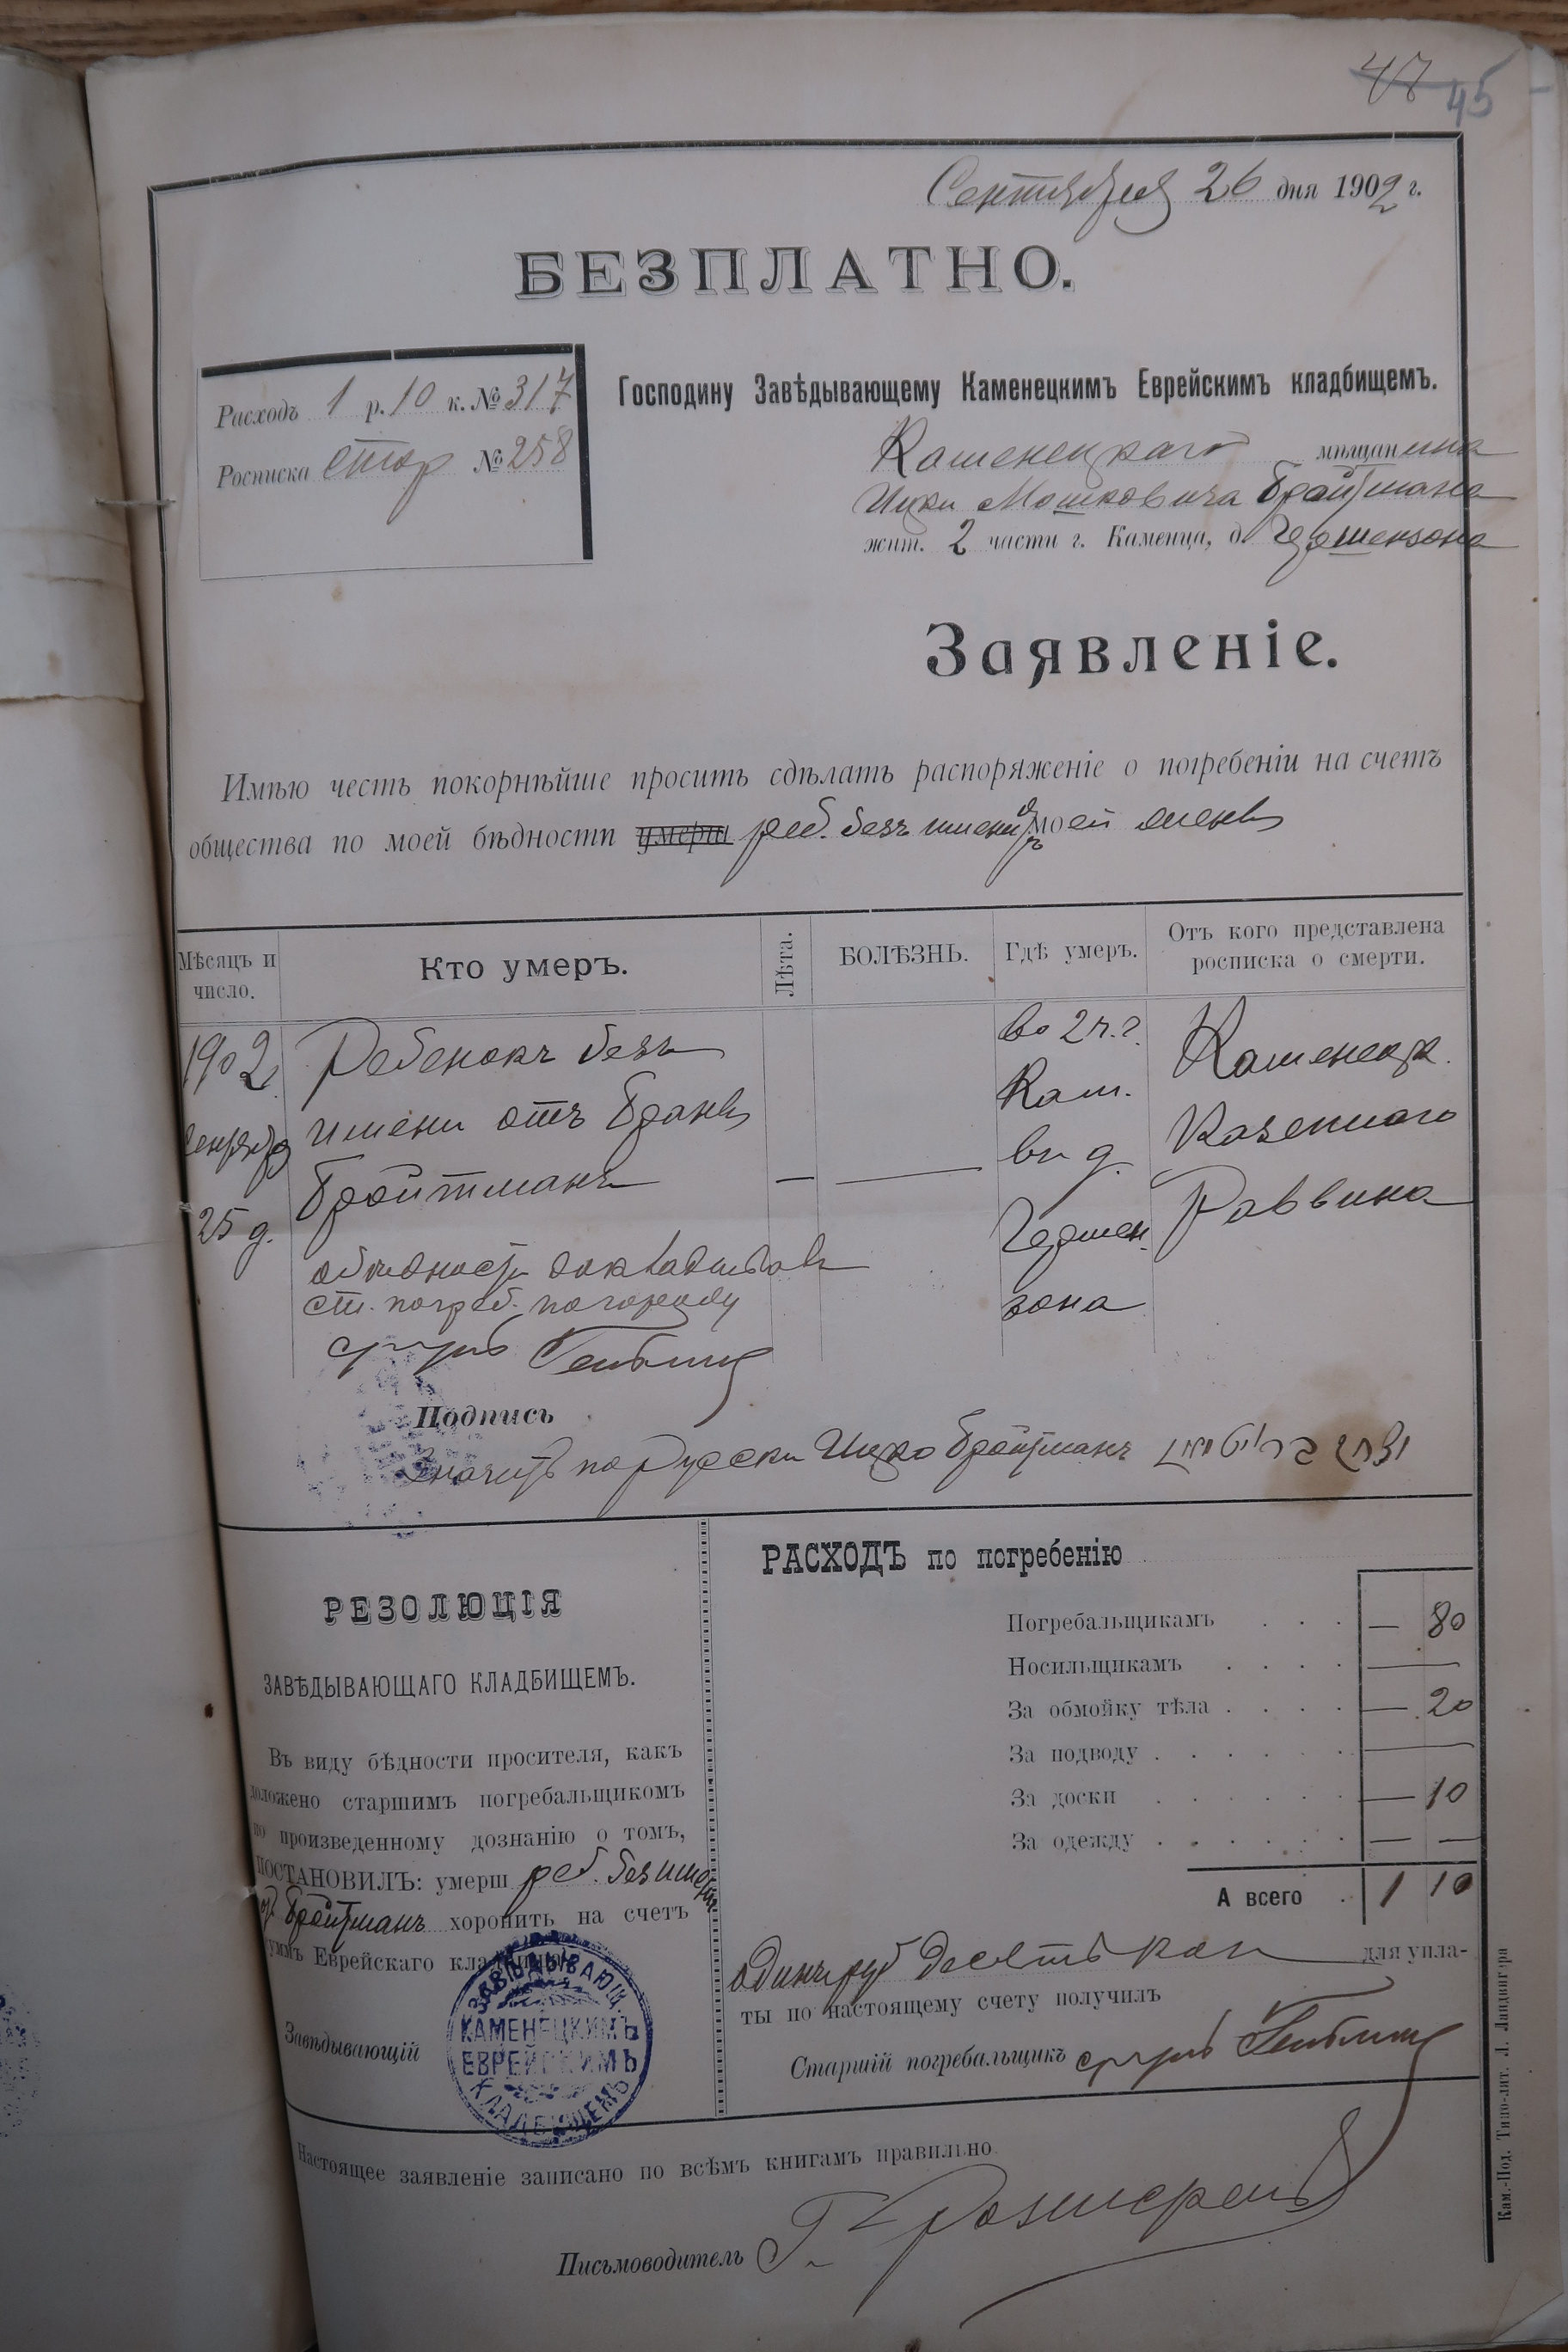 47 45
Сентября 26 дня 1902 г.
БЕЗПЛАТНО.
Расходъ 1 р. 10 к. № 317
Росписка стар № 258
Господину Завѣдывающему Каменецкимъ Еврейскимъ кладбищемъ.
Каменецкаго мѣщанина
Ицки Мошковича Бройтмана
жит. 2 части г. Каменца, д. Гершензона
Заявленіе.
Имѣю честь покорнѣйше просить сдѣлать распоряженіе о погребеніи на счетъ
общества по моей бѣдности умерш реб. безъ имени отъ моей жены
Мѣсяцъ и число.
Кто умеръ.
Лѣта.
БОЛѢЗНЬ.
Гдѣ умеръ.
Отъ кого представлена росписка о смерти.
1902
Сентября
25 д.
Ребенокъ безъ
имени отъ Браны
Бройтманъ
— —
во 2 ч. г.
Кам.
въ д.
Гершен-
зона
Каменецк.
Казеннаго
Раввина
о бѣдности докладывалъ
ст. погреб.
Подпись
Значитъ по Русски Ицко Бройтманъ יצחק ברויטמאן
РЕЗОЛЮЦІЯ
ЗАВѢДЫВАЮЩАГО КЛАДБИЩЕМЪ.
Въ виду бѣдности просителя, какъ
доложено старшимъ погребальщикомъ
по произведенному дознанію о томъ,
ПОСТАНОВИЛЪ: умерш реб. безъ имени
от Бройтманъ хоронить на счетъ
суммъ Еврейскаго кладбища
Завѣдывающій
ЗАВѢДЫВАЮЩ.
КАМЕНЕЦКИМЪ
ЕВРЕЙСКИМЪ
КЛАДБИЩЕМЪ
РАСХОДЪ по погребенію
Погребальщикамъ . . . — 80
Носильщикамъ . . . . —
За обмойку тѣла . . . . — 20
За подводу . . . . . . —
За доски . . . . . . — 10
За одежду . . . . . . — —
А всего . 1 10
одинъ руб десять коп для упла-
ты по настоящему счету получилъ
Старшій погребальщикъ
Настоящее заявленіе записано по всѣмъ книгамъ правильно.
Письмоводитель Г.
Кам.-Под. Типо-лит. Л. Ландвигера